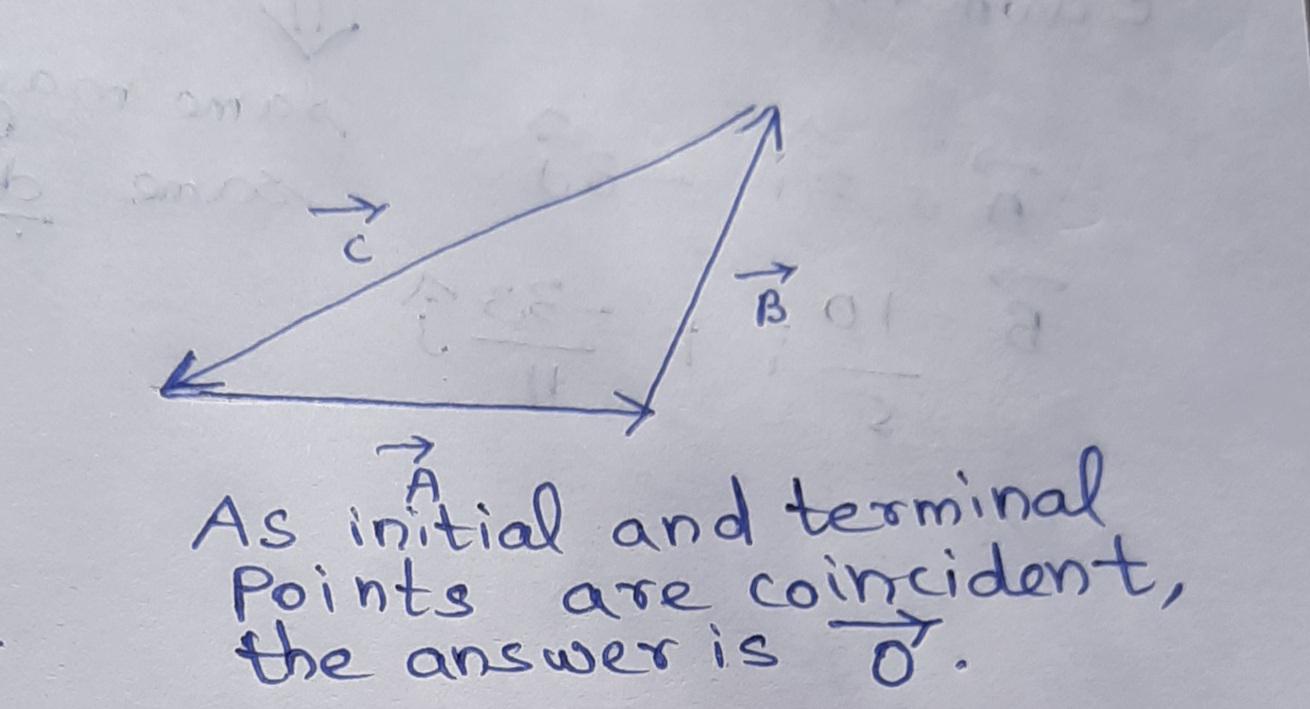 C
B
A
As initial and terminal
Points are coincident,
the answer is 0⃗.